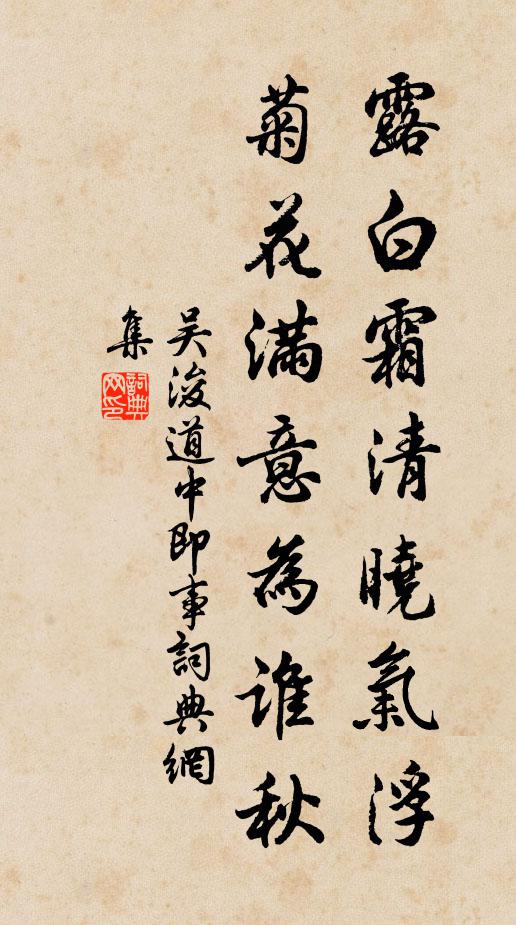 露白霜清曉氣浮
菊花滿意為誰秋
吴浚道中即事詞典網
集
詞典
网印